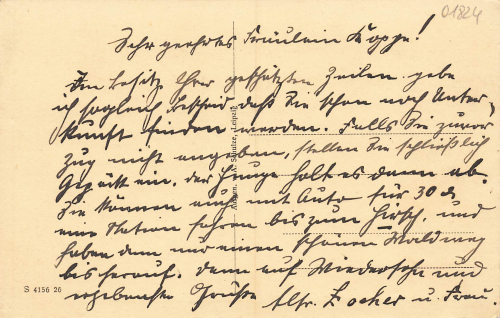 01824
Sehr geehrtes Fräulein Koppe!
Im Besitz Ihrer geschätzten Zeilen gebe
ich sogleich Bescheid, daß Sie schon noch Unter-
kunft finden werden. Falls Sie zuvor
Zug nicht angeben, stellen Sie schließlich
Gepäck ein, der Junge holt es dann ab.
Sie können auch mit Auto für 30 d
eine Station fahren bis zum Hirsch, und
haben dann nur einen schönen Waldweg
bis herauf. Dann auf Wiedersehn und
ergebenste Grüße Alfr. Locher u. Frau.
Schulze, Leipzig
S 4156 26